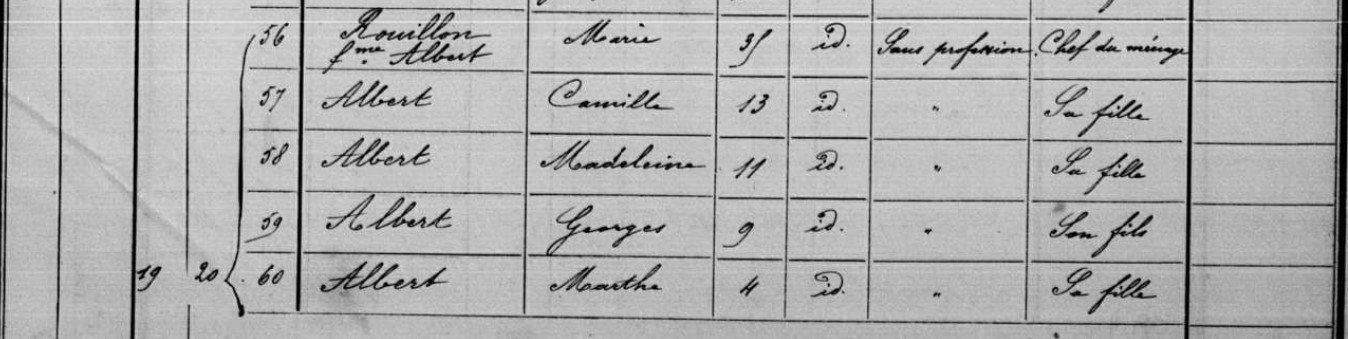 56 Rouillon Marie 35 id. Sans profession Chef du ménage
fme Albert
57 Albert Camille 13 id. " Sa fille
58 Albert Madeleine 11 id. " Sa fille
59 Albert Georges 9 id. " Son fils
19 20 60 Albert Marthe 4 id. " Sa fille